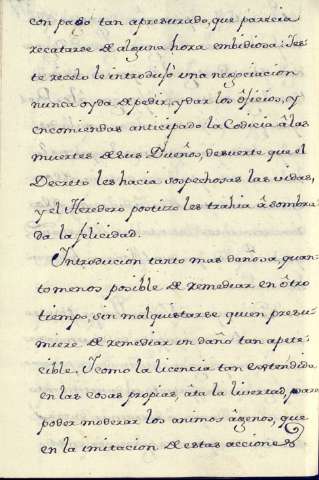 con paso tan apresurado, que parecia
recatarse de alguna hora embidiosa: Jes-
te recelo le introdusò una negociacion
nunca oyda de pedir, y dar los ôficios, y
encomiendas anticipado la Codicia â las
muertes de sus Dueños, desuerte que el
Decreto les hacia sospechosas las vidas,
y el Heredero postizo les trahia âsombra-
da la felicidad.
Introducion tanto mas dañosa, quan-
to menos posible de remediar en ôtro
tiempo, sin malquistarse quien presu-
miere de remediar un daño tan apete-
cible. Y como la licencia tan estendida
en las cosas propias, âta la livertad, para
poder moderar los animos âgenos, que
en la imitacion de estas acciones